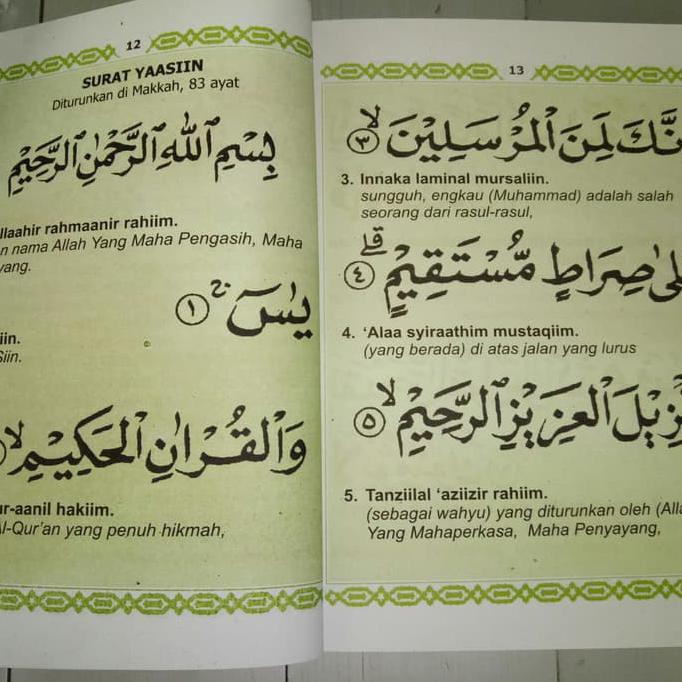 12
SURAT YAASIIN
Diturunkan di Makkah, 83 ayat
بِسْمِ اللّٰهِ الرَّحْمٰنِ الرَّحِيْمِ
llaahir rahmaanir rahiim.
n nama Allah Yang Maha Pengasih, Maha
yang.
يٰسۤ ۚ ١
iin.
Siin.
وَالْقُرْاٰنِ الْحَكِيْمِ ۙ
ur-aanil hakiim.
Al-Qur'an yang penuh hikmah,
13
نَّكَ لَمِنَ الْمُرْسَلِيْنَ ۙ ٣
3. Innaka laminal mursaliin.
sungguh, engkau (Muhammad) adalah salah
seorang dari rasul-rasul,
لٰى صِرَاطٍ مُّسْتَقِيْمٍ ۗ ٤
4. 'Alaa syiraathim mustaqiim.
(yang berada) di atas jalan yang lurus
زِيْلَ الْعَزِيْزِ الرَّحِيْمِ ۙ ٥
5. Tanziilal 'aziizir rahiim.
(sebagai wahyu) yang diturunkan oleh (Alla
Yang Mahaperkasa, Maha Penyayang,